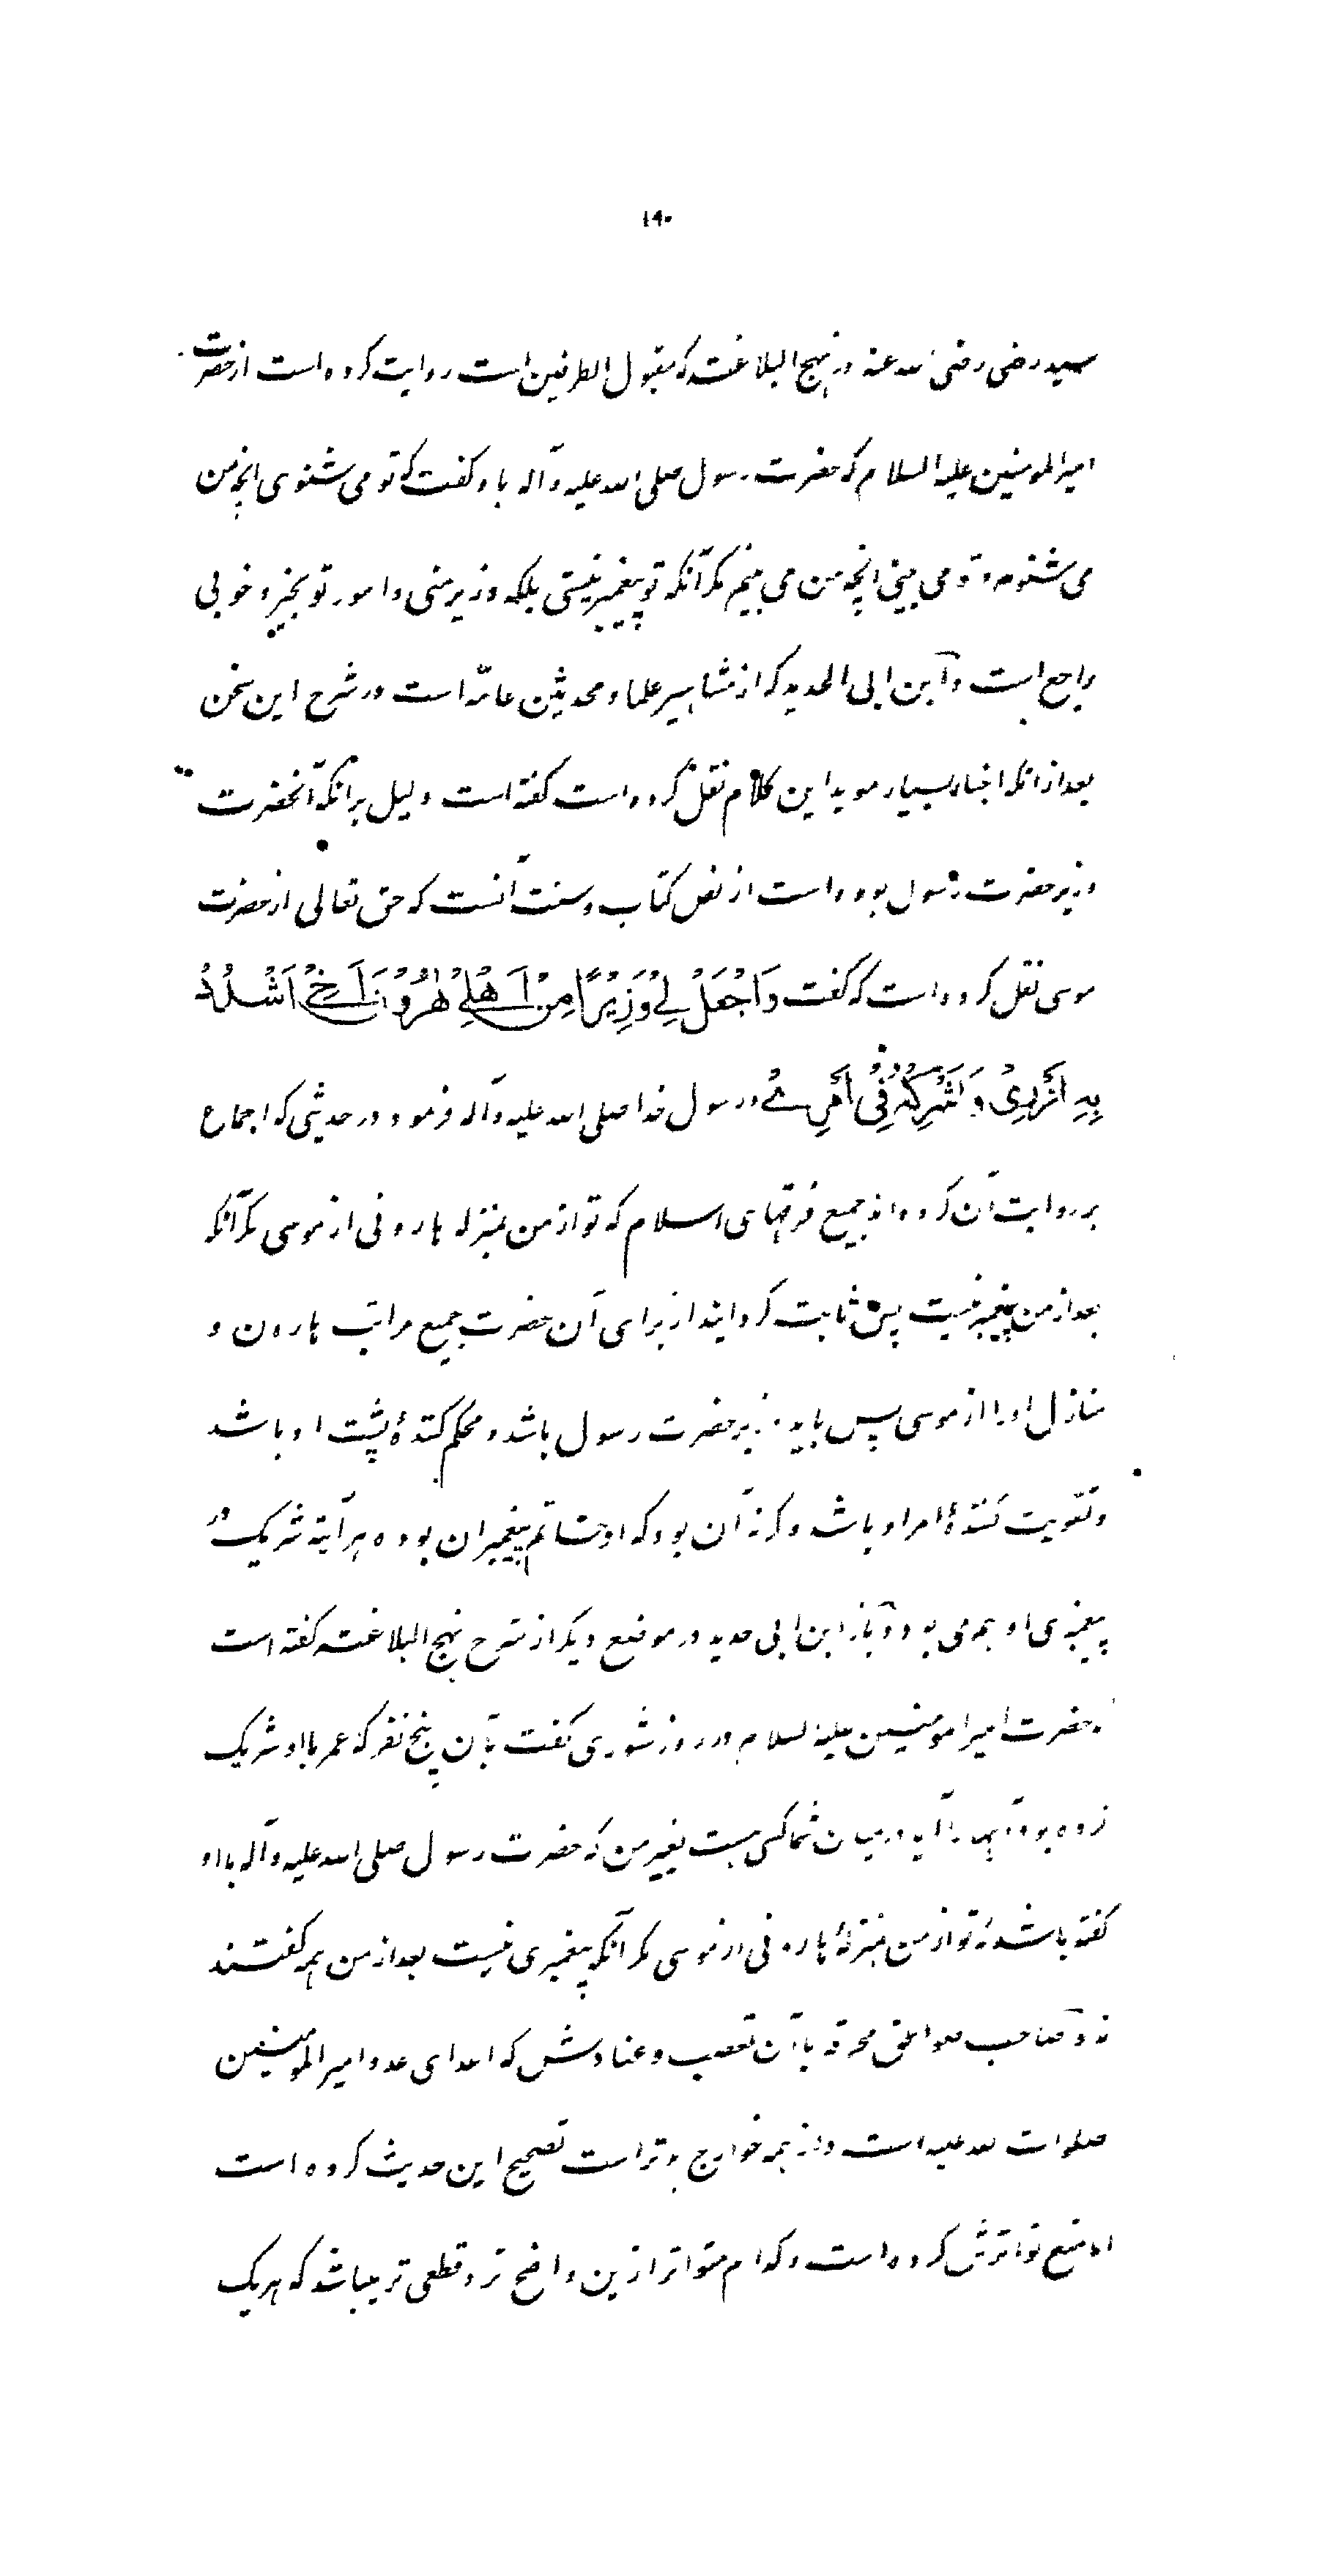 ۱۹۰
سید رضی رضی الله عنه در نهج البلاغت که مقبول الطرفین است روایت کرده است از حضرت
امیرالمومنین علیه السلام که حضرت رسول صلی الله علیه وآله باو گفت که تو می شنوی انچه من
می شنوم و تو می بینی انچه من می بینم مکر آنکه تو پیغمبر نیستی بلکه وزیر منی و امور تو بخیر و خوبی
راجع است و آبن ابی الحدید که از مشاهیر علما و محدثین عامّه است در شرح این سخن
بعد از انکه اخبار بسیار موید این کلام نقل کرده است کفته است دلیل برآنکه آنحضرت
وزیر حضرت رسول بوده است از نص کتاب و سنت آنست که حق تعالی از حضرت
موسی نقل کرده است که کفت وَاجْعَلْ لِیْ وَزِیْرًا مِنْ اَهْلِیْ هٰرُوْنَ اَخِیْ اَشْدُدْ
بِهِ اَزْرِیْ وَاَشْرِکْهُ فِیْ اَمْرِیْ و رسول خدا صلی الله علیه وآله فرمود در حدیثی که اجماع
بر روایت آن کرده اند جمیع فرقهای اسلام که تو از من بمنزله هارونی از موسی مکر آنکه
بعد از من پیغمبر نیست پس ثابت کردانید از برای آن حضرت جمیع مراتب هارون و
منازل اورا از موسی پس باید وزیر حضرت رسول باشد و محکم کنندهٔ پشت او باشد
و تقویت کنندهٔ امر او باشد و کر نه آن بود که او خاتم پیغمبران بوده هرآینه شریک در
پیغمبری او هم می بود و باز ابن ابی حدید در موضع دیکر از شرح نهج البلاغت کفته است
که حضرت امیرامومنین علیه السلام در روز شوری کفت بآن پنج نفر که عمر بااو شریک
زده بود آیا در میان شما کسی هست بغیر من که حضرت رسول صلی الله علیه وآله بااو
کفته باشد که تو از من بمنزلهٔ هارونی از موسی مکر آنکه پیغمبری نیست بعد از من همه کفتند
نه و صاحب صواعق محرقه باآن تعصب و عنادش که اعدای عدو امیرالمومنین
صلوات الله علیه است و از همه خوارج بدتر است تصحیح این حدیث کرده است
اما منع تواترش کرده است و کدام متواتر ازین واضح تر و قطعی تر میباشد که هریک